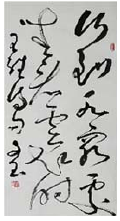 行到水穷处
坐看云起时
王维诗句